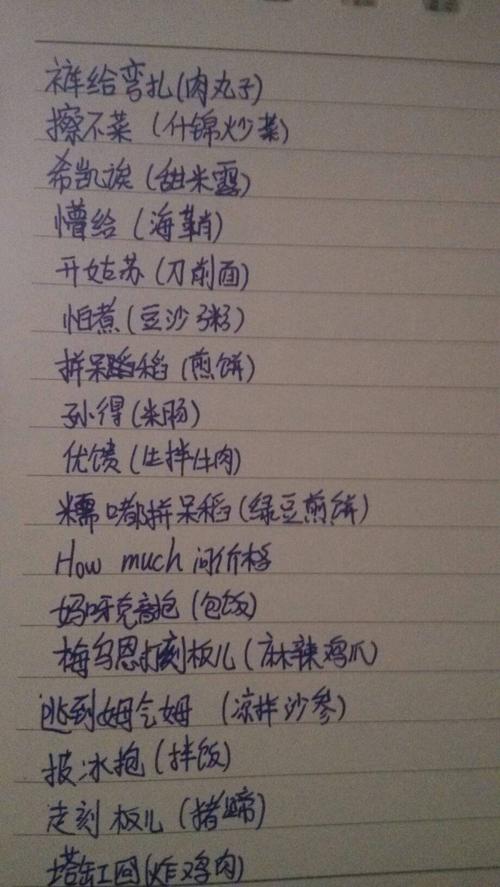 裤给弯扎(肉丸子)
擦不菜(什锦炒菜)
希凯诶(甜米露)
懵给(海鞘)
开姑苏(刀削面)
怕煮(豆沙粥)
拼呆稻(煎饼)
孙得(米肠)
优馈(生拌牛肉)
糯嘟拼呆稻(绿豆煎饼)
How much 问价格
妈呀克抱(包饭)
梅乌恩刻板儿(麻辣鸡爪)
逃到姆气姆(凉拌沙参)
披冰抱(拌饭)
走刻板儿(猪蹄)
塔缸回(炸鸡肉)